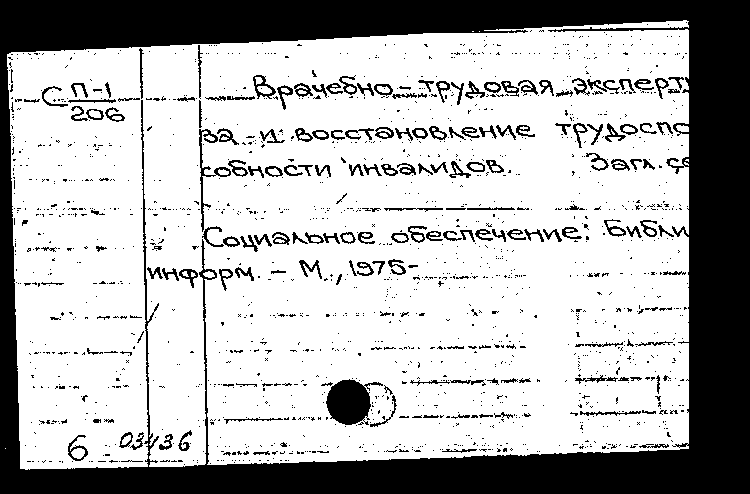 С П-1
206
Врачебно-трудовая эксперти
за и восстановление трудоспо
собности инвалидов. Загл. се
Социальное обеспечение: Библи
информ. - М., 1975-
6 03436